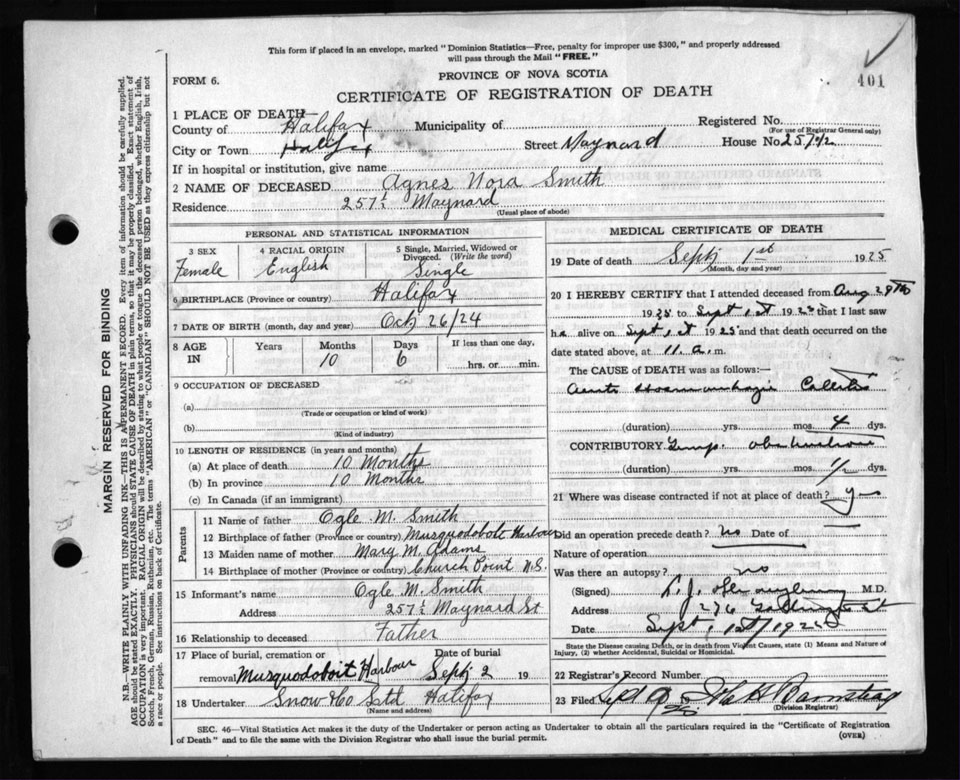 This form if placed in an envelope, marked "Dominion Statistics—Free, penalty for improper use $300," and properly addressed
will pass through the Mail "FREE."
FORM 6.
PROVINCE OF NOVA SCOTIA
401
CERTIFICATE OF REGISTRATION OF DEATH
1 PLACE OF DEATH
County of Halifax Municipality of Registered No.
(For use of Registrar General only)
City or Town Halifax Street Maynard House No. 257 1/2
If in hospital or institution, give name
2 NAME OF DECEASED Agnes Nora Smith
Residence 257½ Maynard
(Usual place of abode)
PERSONAL AND STATISTICAL INFORMATION
3 SEX 4 RACIAL ORIGIN 5 Single, Married, Widowed or Divorced. (Write the word)
Female English Single
6 BIRTHPLACE (Province or country) Halifax
7 DATE OF BIRTH (month, day and year) Oct 26/24
8 AGE IN Years Months Days If less than one day,
10 6 hrs. or min.
9 OCCUPATION OF DECEASED
(a)
(Trade or occupation or kind of work)
(b)
(Kind of industry)
10 LENGTH OF RESIDENCE (in years and months)
(a) At place of death 10 Months
(b) In province 10 Months
(c) In Canada (if an immigrant)
Parents
11 Name of father Ogle M. Smith
12 Birthplace of father (Province or country) Musquodoboit Harbour
13 Maiden name of mother Mary M. Adams
14 Birthplace of mother (Province or country) Church Point N.S.
15 Informant's name Ogle M. Smith
Address 257½ Maynard St
16 Relationship to deceased Father
17 Place of burial, cremation or Date of burial
removal Musquodoboit Harbour Sept 2 19
18 Undertaker Snow & Co Ltd Halifax
(Name and address)
MEDICAL CERTIFICATE OF DEATH
19 Date of death Sept 1st 1925
(Month, day and year)
20 I HEREBY CERTIFY that I attended deceased from Aug 29th
1925 to Sept 1st 1925 that I last saw
h alive on Sept 1st 1925 and that death occurred on
date stated above, at 11. a. m.
The CAUSE of DEATH was as follows:—
Colitis
(duration) yrs. mos. 4 dys.
CONTRIBUTORY
(duration) yrs. mos. 1/2 dys.
21 Where was disease contracted if not at place of death?
Did an operation precede death? no Date of
Nature of operation
Was there an autopsy? no
(Signed) M.D.
Address 276
Date Sept, 1st/1925
State the Disease causing Death, or in death from Violent Causes, state (1) Means and Nature of
Injury, (2) whether Accidental, Suicidal or Homicidal.
22 Registrar's Record Number
23 Filed
(Division Registrar)
SEC. 46—Vital Statistics Act makes it the duty of the Undertaker or person acting as Undertaker to obtain all the particulars required in the "Certificate of Registration
of Death" and to file the same with the Division Registrar who shall issue the burial permit.
(OVER)
MARGIN RESERVED FOR BINDING
N.B.—WRITE PLAINLY WITH UNFADING INK—THIS IS A PERMANENT RECORD. Every item of information should be carefully supplied.
AGE should be stated EXACTLY. PHYSICIANS should STATE CAUSE OF DEATH in plain terms, so that it may be properly classified. Exact statement of
OCCUPATION is very important. RACIAL ORIGIN will be described by stating to what people or tongue the deceased person belonged, whether English, Irish,
Scotch, French, German, Russian, Ruthenian, etc. The terms "AMERICAN" or "CANADIAN" SHOULD NOT BE USED as they express citizenship but not
a race or people. See instructions on back of Certificate.